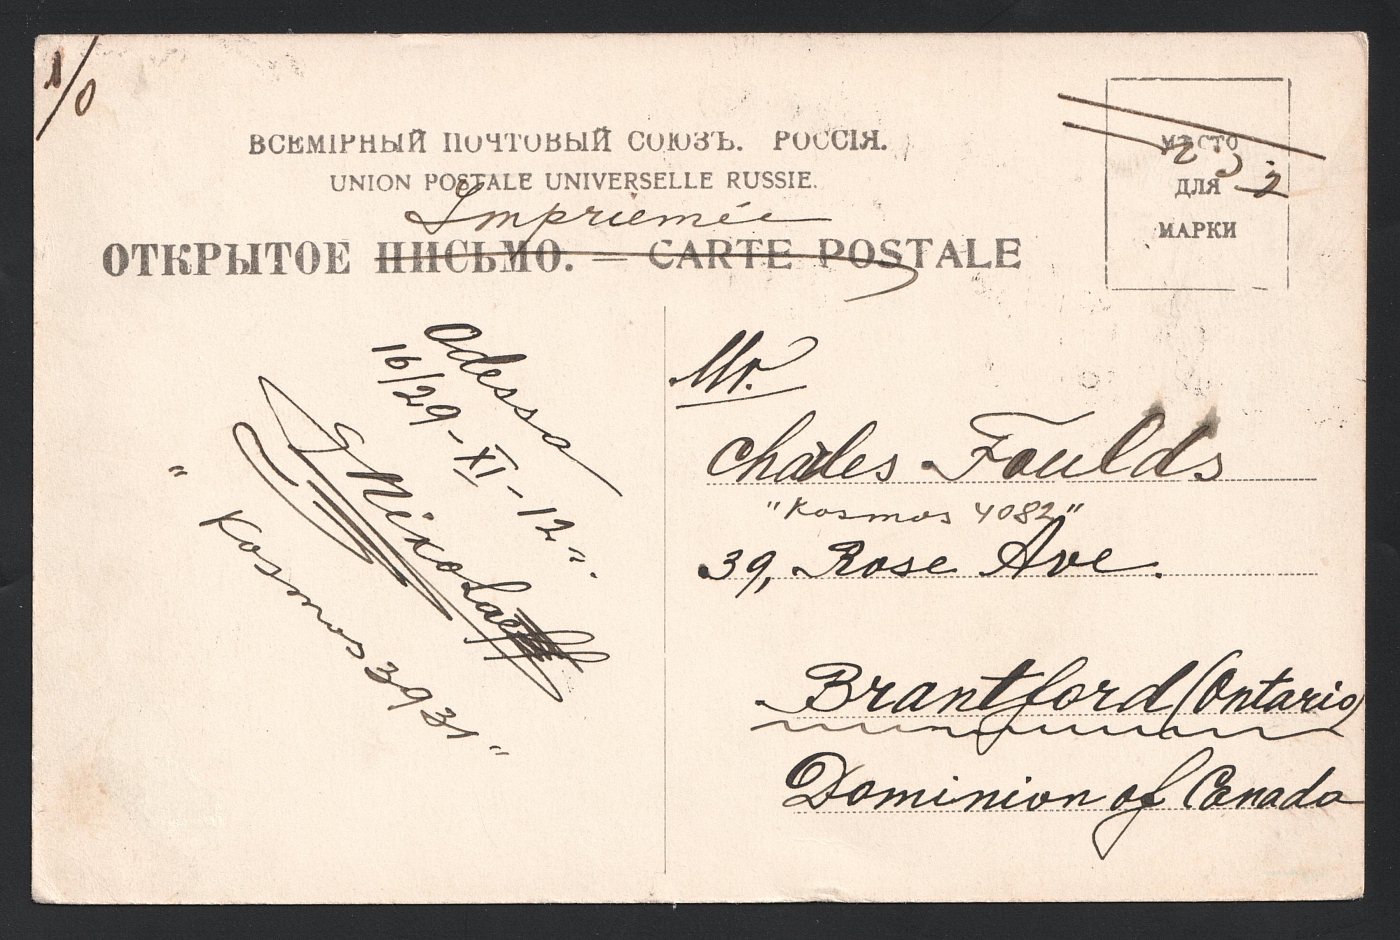 1/0
ВСЕМІРНЫЙ ПОЧТОВЫЙ СОЮЗЪ. РОССІЯ.
UNION POSTALE UNIVERSELLE RUSSIE.
Impriemée
ОТКРЫТОЕ ПИСЬМО. — CARTE POSTALE
МѢСТО
ДЛЯ
МАРКИ
Odessa
16/29-XI-12".
G Nikolaeff
"Kosmos 3931"
Mr.
Charles Foulds
"Kosmos 4082"
39, Rose Ave.
Brantford (Ontario)
Dominion of Canada